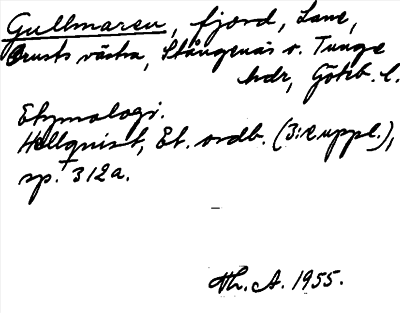 Gullmaren, fjord, Lane,
Orusts västra, Stångenäs o. Tunge
hdr, Göteb. l.
Etymologi.
Hellquist, Et. ordb. (3:e uppl.),
sp. 312a.
Th. A. 1955.